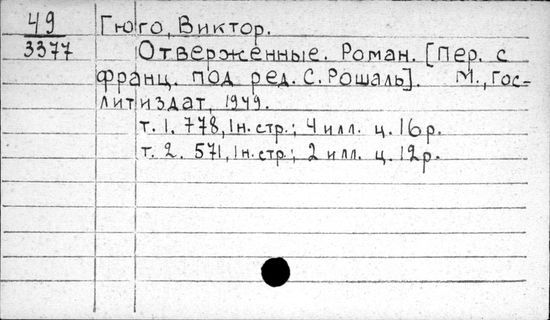 49 Гюго, Виктор.
3377 Отверженные. Роман. [Пер. с
франц. под ред. С. Рошаль]. М., Гос-
литиздат, 1949.
т. 1. 778, 1 н. стр.; 4 илл. ц. 16 р.
т. 2. 571, 1 н. стр.; 2 илл. ц. 12 р.